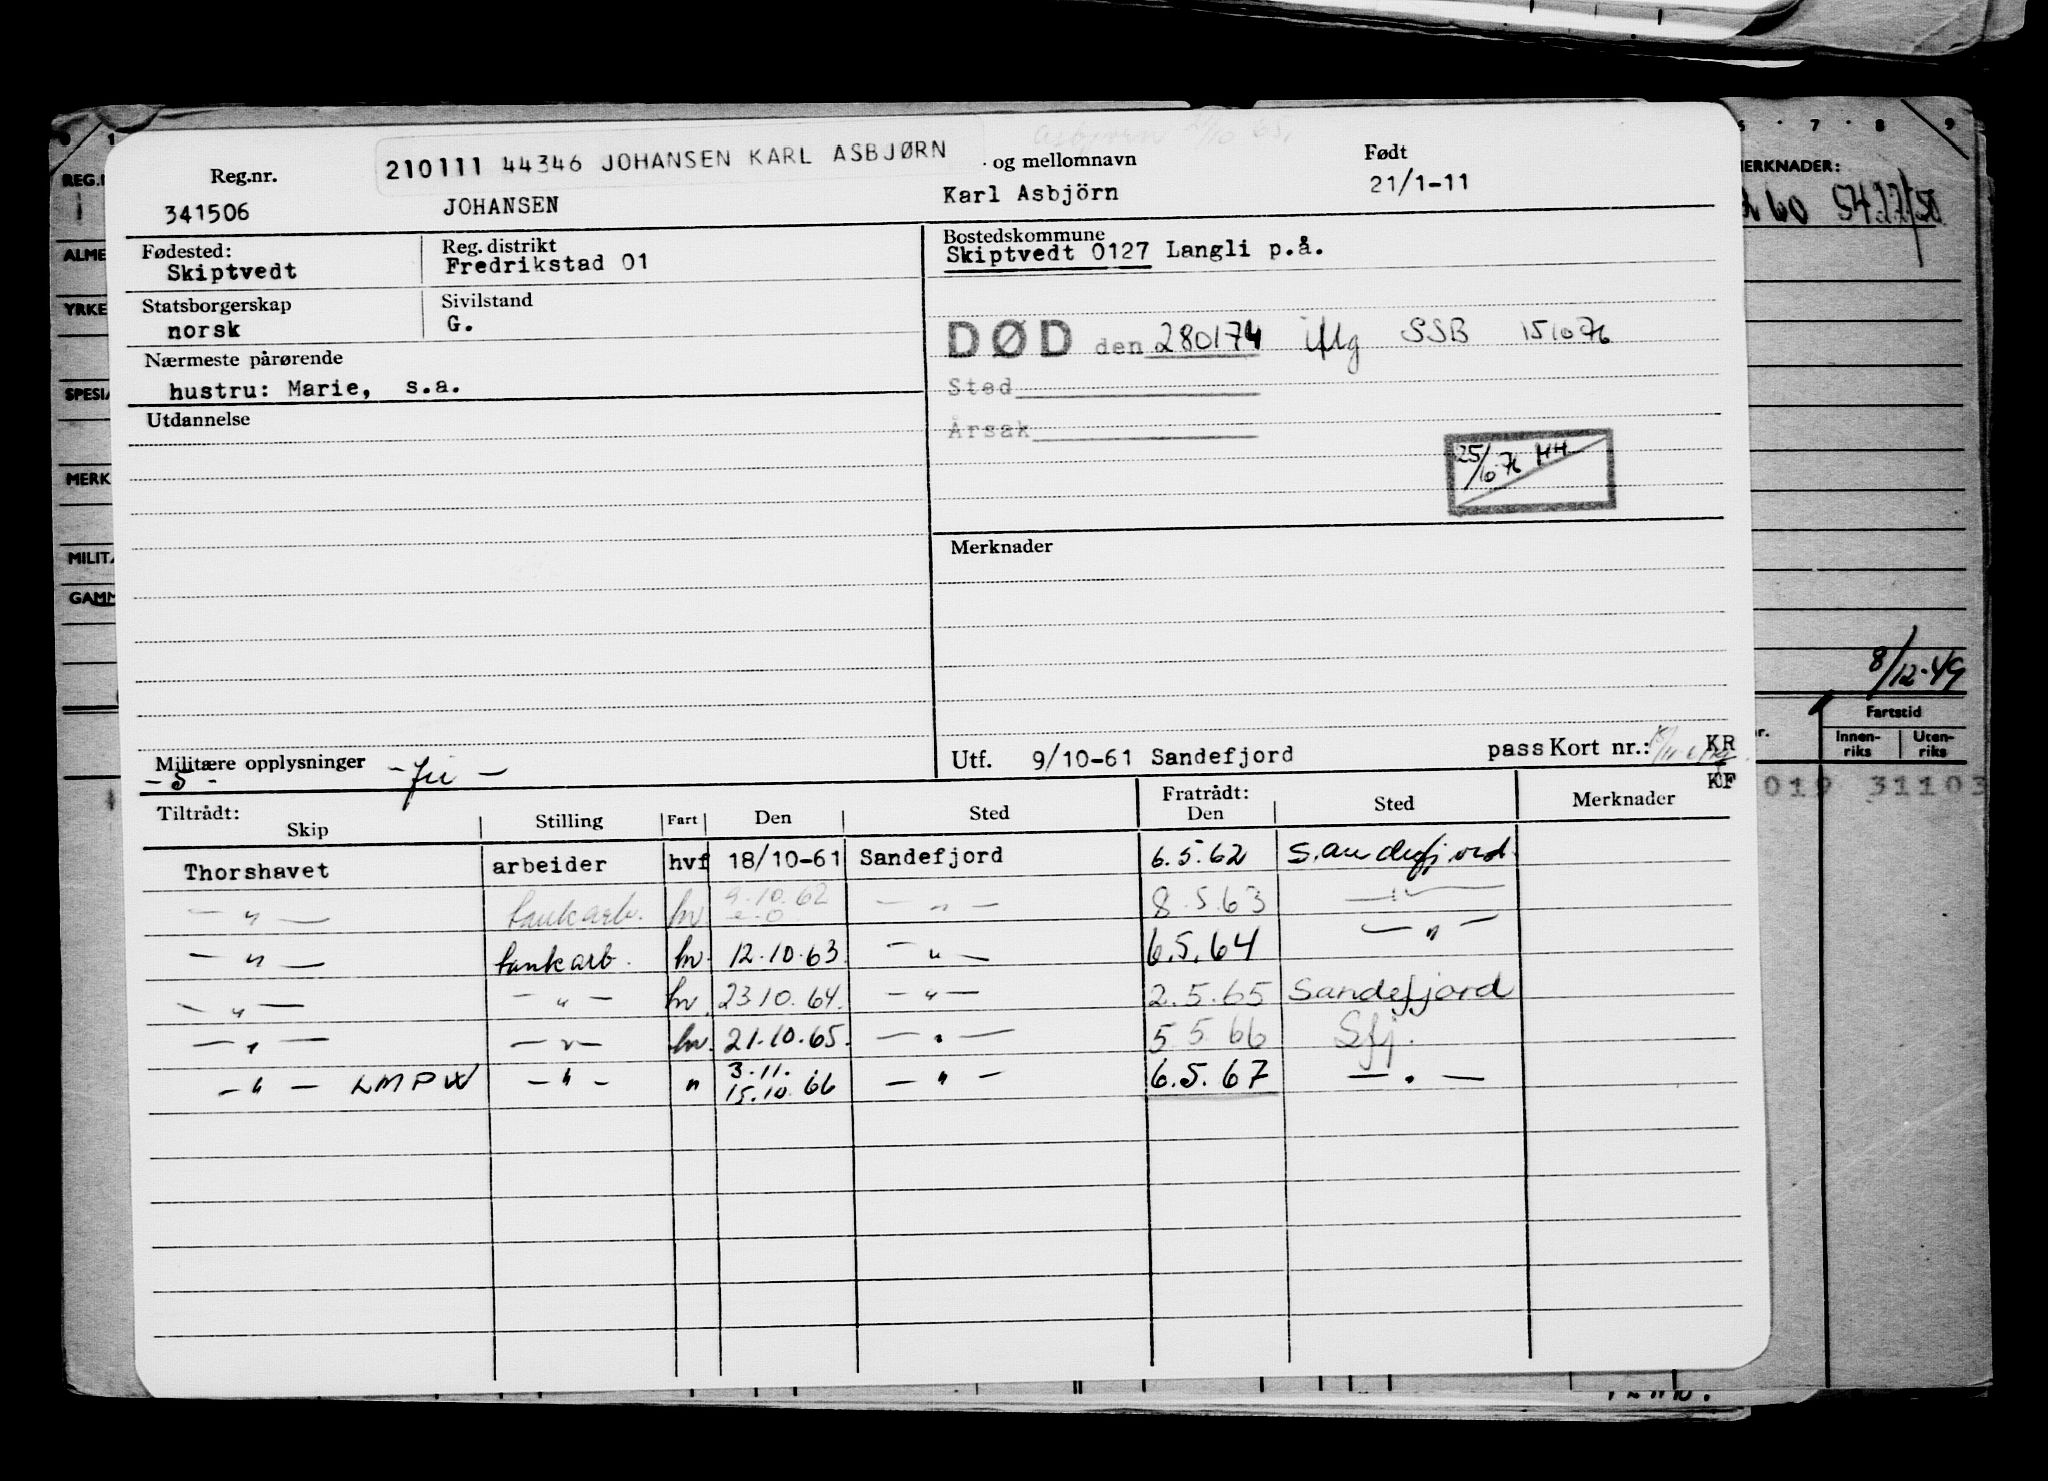 210111 44346 JOHANSEN KARL ASBJØRN
Asbjørn
Reg.nr. og mellomnavn Født
341506 JOHANSEN Karl Asbjörn 21/1-11
Fødested: Reg. distrikt Bostedskommune
Skiptvedt Fredrikstad 01 Skiptvedt 0127 Langli p.å.
Statsborgerskap Sivilstand
norsk G.
DØD den 280174 iflg SSB 151076
Nærmeste pårørende
hustru: Marie, s.a.
Sted
Utdannelse
Årsak
25/10 76 HH
Merknader
Militære opplysninger
- 5 -
Utf. 9/10-61 Sandefjord pass Kort nr.: KR
KF
Tiltrådt: Fratrådt:
Skip Stilling Fart Den Sted Den Sted Merknader
Thorshavet arbeider hvf 18/10-61 Sandefjord 6.5.62 Sandefjord
— " — tankarb. hv 9.10.62 — " — 8.5.63 — " —
— " — tankarb. hv. 12.10.63. — " — 6.5.64 — " —
— " — — " — hv. 23.10.64. — " — 2.5.65 Sandefjord
— " — — " — hv. 21.10.65. — " — 5.5.66 Sfj.
— " — LMPW — " — " 3.11. — " — 6.5.67 — " —
15.10.66
0 1
REG.
ALME
YRKE
SPESIA
MERK
MILIT
GAMM
6 7 8 9
MERKNADER:
60
8/12-49
Fartstid
Innen-riks Uten-riks
019 31103